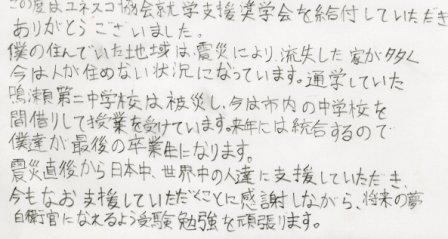 この度はユネスコ協会就学支援奨学会を給付していただき
ありがとうございました。
僕の住んでいた地域は震災により、流失した家が多く
今は人が住めない状況になっています。通学していた
鳴瀬第二中学校は被災し、今は市内の中学校を
間借りして授業を受けています。来年には統合するので
僕達が最後の卒業生になります。
震災直後から日本中、世界中の人達に支援していただき、
今もなお支援していただくことに感謝しながら、将来の夢
自衛官になれるよう受験勉強を頑張ります。